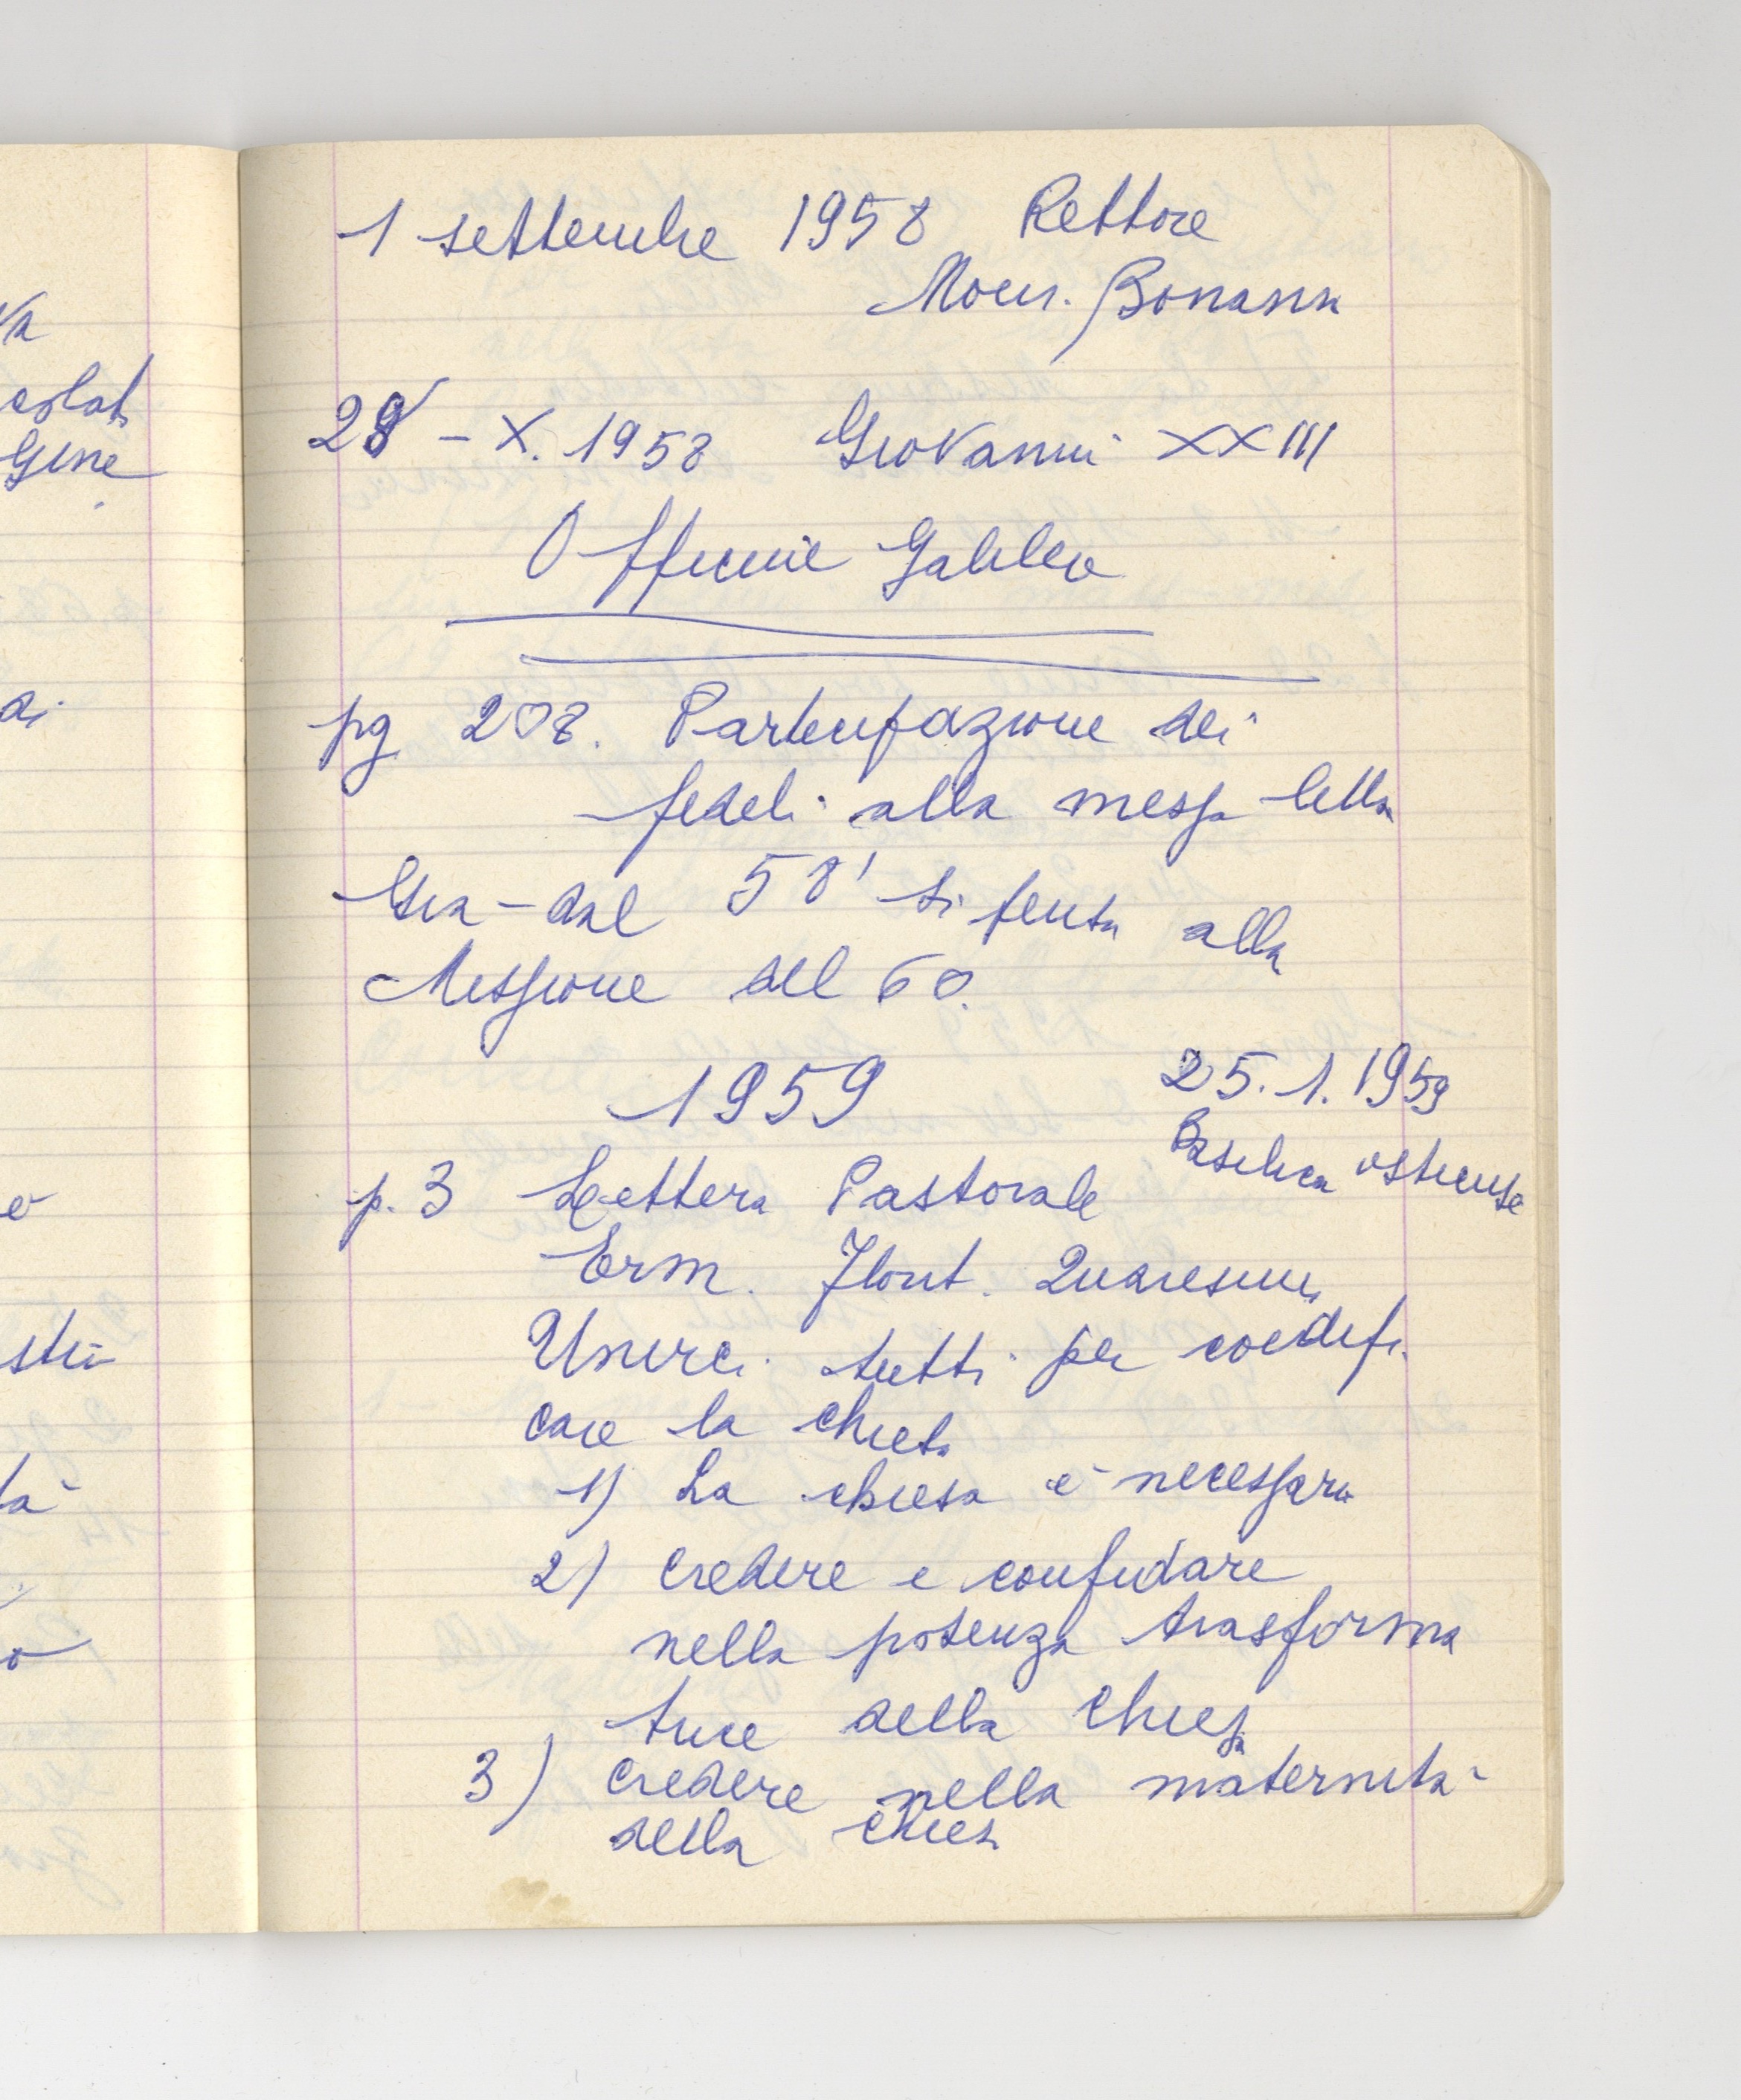 1 settembre 1958 Rettore
Mons. Bonanni
28 - X. 1958 Giovanni XXIII
Officine Galileo
pg 208. Partecipazione dei
fedeli alla messa letta
Già dal 58' si pensa alla
Missione del 60.
1959
25. 1. 1959
Basilica ostiense
p. 3 Lettera Pastorale
Erm. Flor.t. Quaresima
Unirci tutti per coedifi
care la chiesa
1) La chiesa è necessaria
2) credere e confidare
nella potenza trasforma
trice della Chiesa
3) credere nella maternità
della chiesa